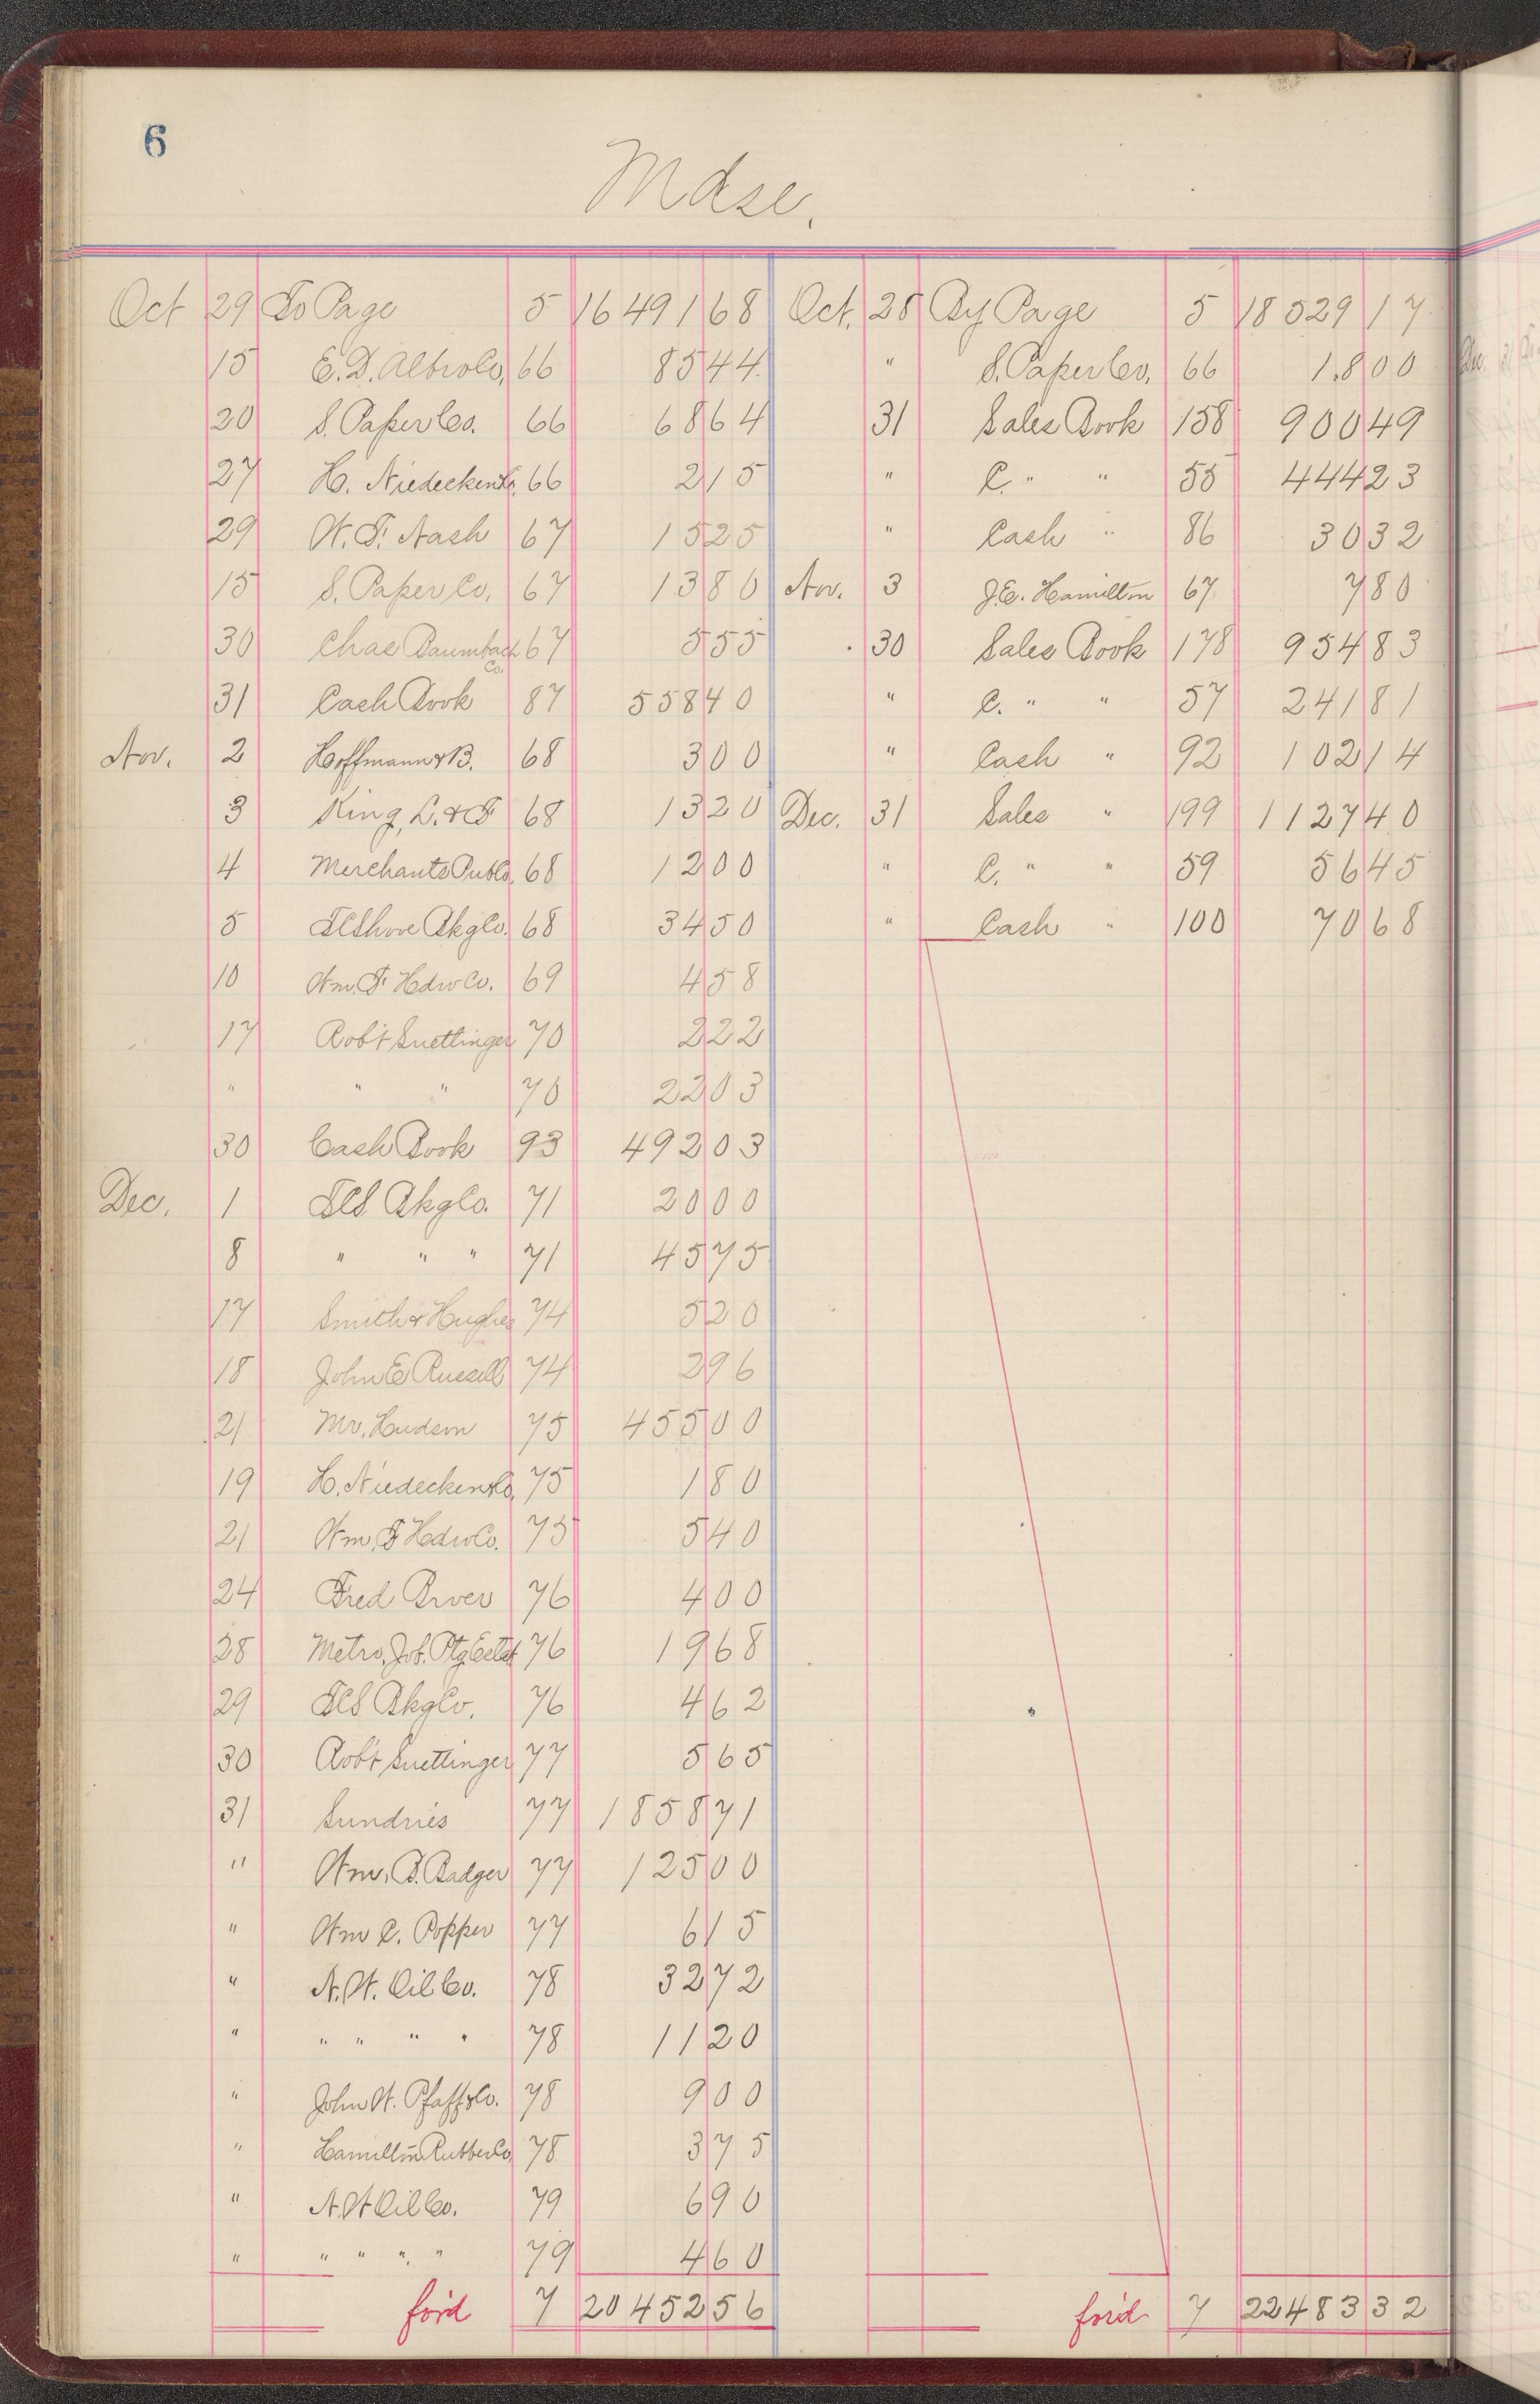 6
Mdse.
Oct 29 To Page 5 16491 68 Oct. 28 By Page 5 18529 17
15 E. D. Albro Co, 66 85 44 " S. Paper Co. 66 1.8 00
20 S. Paper Co. 66 68 64 31 Sales Book 158 900 49
27 H. Niedecken Co. 66 2 15 " C. " " 55 444 23
29 W. F. Nash 67 15 25 " Cash " 86 30 32
15 S. Paper Co, 67 13 80 Nov. 3 J. E. Hamilton 67 7 80
30 Chas Baumbach Co. 67 5 55 30 Sales Book 178 954 83
31 Cash Book 87 558 40 " C. " " 57 241 81
Nov. 2 Hoffmann & B. 68 3 00 " Cash " 92 102 14
3 King, L. & F 68 13 20 Dec. 31 Sales " 199 1127 40
4 Merchants Pub Co, 68 12 00 " C. " " 59 56 45
5 FC Shove Bkg Co. 68 34 50 " Cash " 100 70 68
10 Wm. F Hdw Co. 69 4 58
17 Rob't Suettinger 70 2 22
" " " 70 22 03
30 Cash Book 93 492 03
Dec. 1 FCS Bkg Co. 71 20 00
8 " " " 71 45 75
17 Smith & Hughes 74 5 20
18 John E Russell 74 2 96
21 Mr. Hudson 75 455 00
19 H. Niedecken & Co, 75 1 80
21 Wm. F Hdw Co. 75 5 40
24 Fred Brver 76 4 00
28 Metro. Job. Ptg Estab 76 19 68
29 FCS Bkg Co. 76 4 62
30 Rob't Suettinger 77 5 65
31 Sundries 77 1858 71
" Wm. B. Badger 77 125 00
" Wm C. Popper 77 6 15
" N. W. Oil Co. 78 32 72
" " " " " 78 11 20
" John W. Pfaff & Co. 78 9 00
" Hamilton Rubber Co, 78 3 75
" N. W Oil Co. 79 6 90
" " " " " 79 4 60
for'd 7 20452 56 for'd 7 22483 32